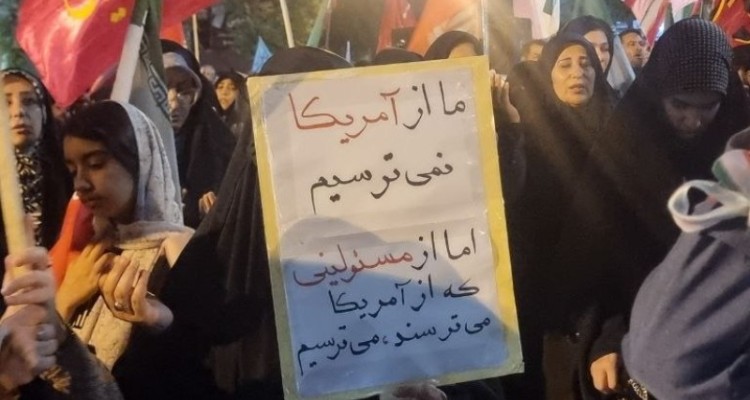 ما از آمریکا
نمی‌ترسیم
اما از مسئولینی
که از آمریکا
می‌ترسند، می‌ترسیم